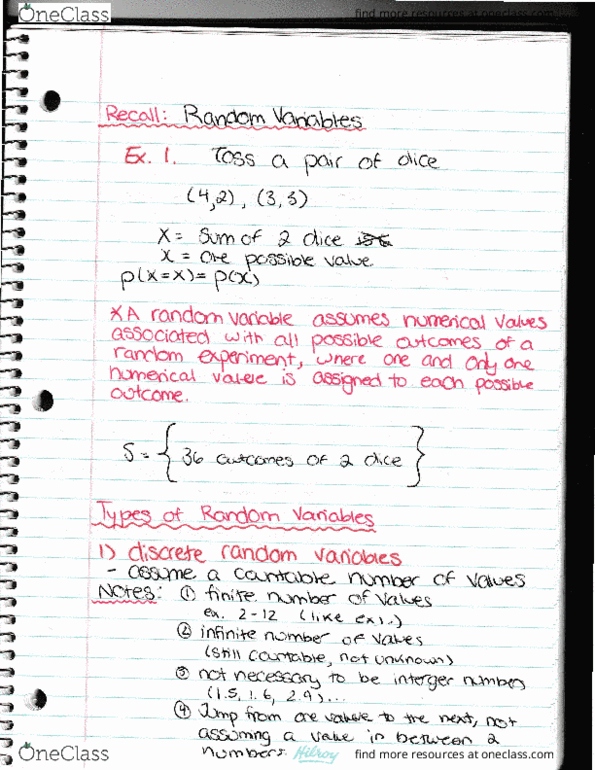 OneClass
find more resources at oneclass.com
Recall: Random Variables
Ex. 1. Toss a pair of dice
(4,2), (3,3)
X = Sum of 2 dice
x = one possible value
p(X=x)= p(x)
* A random variable assumes numerical values
associated with all possible outcomes of a
random experiment, where one and only one
numerical value is assigned to each possible
outcome.
S = { 36 outcomes of 2 dice }
Types of Random Variables
1) discrete random variables
- assume a countable number of values
Notes: ① finite number of values
ex. 2-12 (like ex1.)
② infinite number of values
(still countable, not unknown)
③ not necessary to be interger numbers
(1.5, 1.6, 2.9)...
④ Jump from one value to the next, not
assuming a value in between 2
numbers. Hilroy
OneClass
find more resources at oneclass.com